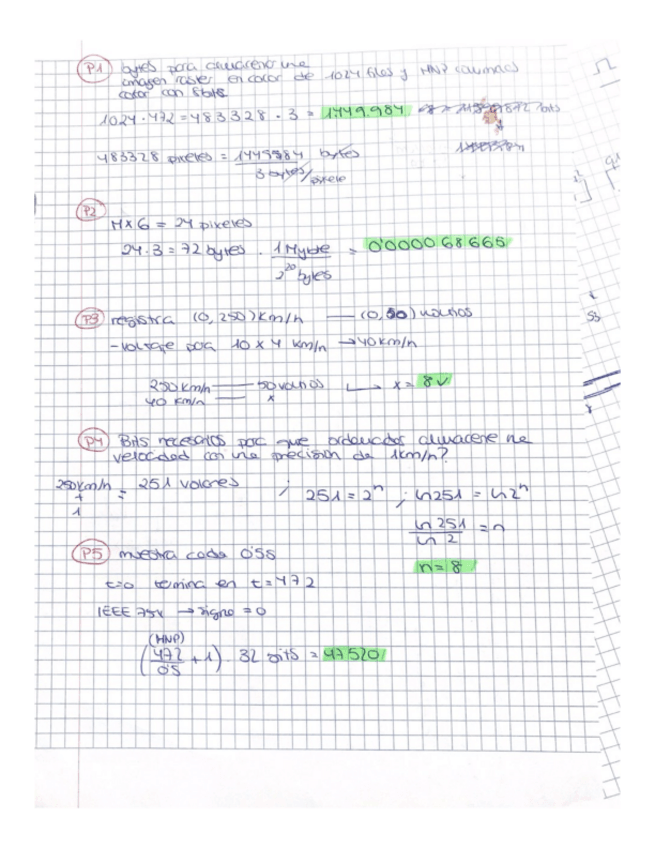 P1 bytes para almacenar una
imagen raster en color de 1024 filas y MNP columnas
color con 8bits
1024·472=483328·3= 1.449.984
483328 pixeles = 1449984 bytes
3 bytes/pixele
P2
MX6 = 24 pixeles
24·3=72 bytes · 1 Mbyte = 0'0000 68665
2^20 bytes
P3 registra (0,250)km/h — (0,50) voltios
-voltaje para 10 x 4 km/h → 40km/h
250 km/h — 50 voltios → x= 8V
40 km/h — x
P4 Bits necesarios para que ordenador almacene una
velocidad con una precisión de 1km/h?
250km/h + 1 = 251 valores ; 251=2^n ; ln251 = ln2^n
ln 251 = n
ln 2
P5 muestra cada 0'5s
n=8
t=0 termina en t=472
IEEE 754 → signo = 0
(MNP)
(472 + 1) · 32 bits =
0'5